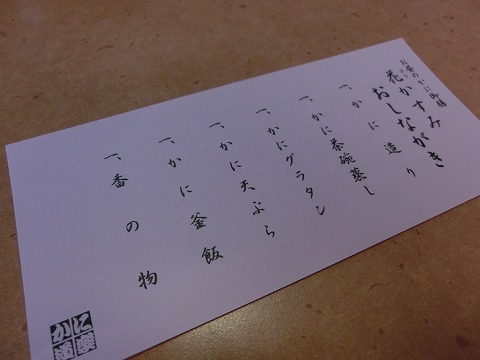 お昼のかに御膳
花かすみ
おしながき
一、かに造り
一、かに茶碗蒸し
一、かにグラタン
一、かに天ぷら
一、かに釜飯
一、香の物
かに道楽